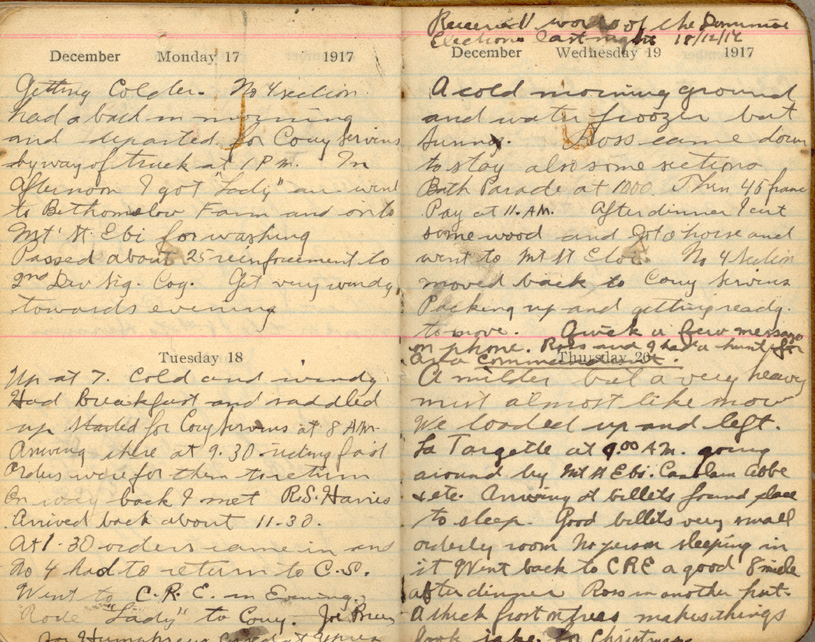 December Monday 17 1917
Getting Colder. No 4 section
had a bath in morning
and departed for Couy Servins
by way of truck at 1 P.M. In
afternoon I got "Lady" an went
to Bethomslow Farm and on to
Mt St Ebi for washing
Passed about 25 reinforcement to
2nd Div Sig. Coy. Get very windy
towards evening
Tuesday 18
Up at 7. Cold and windy
Had Breakfast and saddled
up started for Couy Servins at 8 AM.
Arriving there at 9.30 riding fast
Orders were for them to return
On way back I met R.S. Harris
Arrived back about 11-30.
At 1-30 orders came in and
No 4 had to return to C.S.
Went to C.R.E. in Evening.
Rode "Lady" to Couy. Joe
Humphreys at
Received word of the Dominion
Elections last night 18/12/17
December Wednesday 19 1917
A cold morning ground
and water froozen but
sunny. Ross came down
to stay also some sections
Bath Parade at 1000 Then 45 franc
Pay at 11. A.M. After dinner I cut
some wood and got a horse and
went to Mt St Eloi. No 4 Section
moved back to Couy Servins
Packing up and getting ready.
to move. Quick a few message
on phone. Ross and I had a hunt for
Area Commandant.
Thursday 20
A milder but a very heavy
mist almost like snow
We loaded up and left.
La Targette at 9.00 A.M. going
around by Mt St Ebi. Camlain Abbe
& etc. Arriving at billets found place
to sleep. Good billets very small
orderly room no person sleeping in
it Went back to CRE a good 8 mile
after dinner Ross in another hut.
A thick frost on trees makes things
look like for Christmas